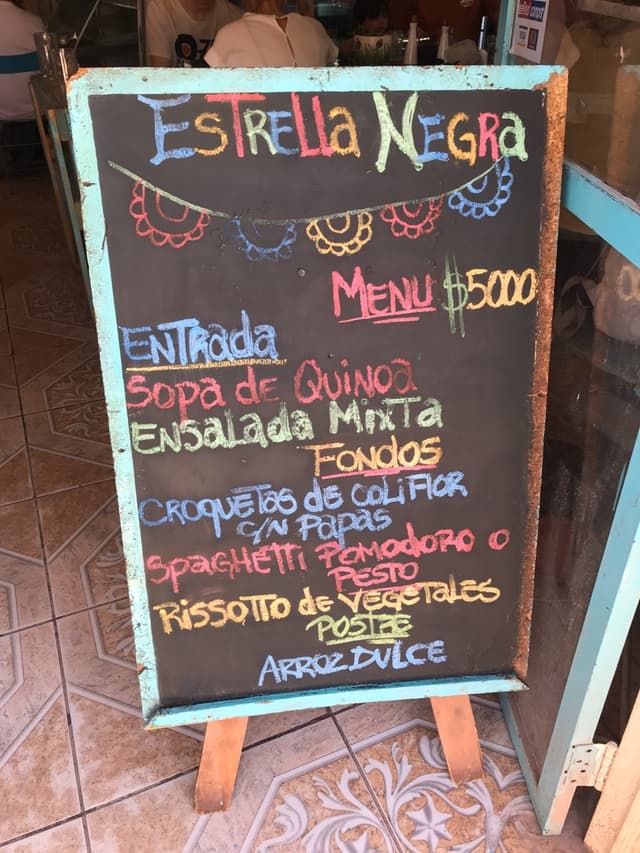 EsTRELLa NEGRa
MENU $5000
ENTRada
Sopa de QUINOa
ENSalada MiXTa
FONDOS
CROQUETas de COLiFlOR
C/N Papas
SpaGHETTi POMODORO O
PESTO
RISSOTTO de VEGETALES
POSTRE
ARROZ DULCE